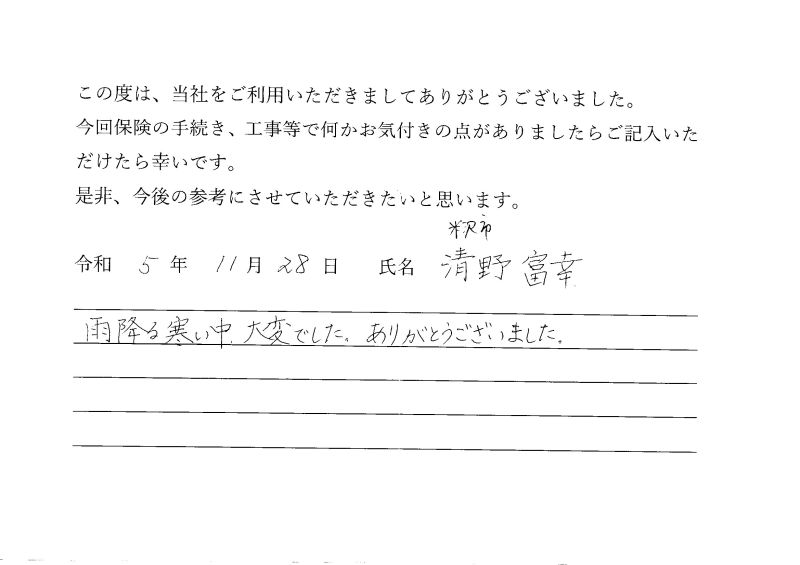 この度は、当社をご利用いただきましてありがとうございました。
今回保険の手続き、工事等で何かお気付きの点がありましたらご記入いた
だけたら幸いです。
是非、今後の参考にさせていただきたいと思います。
米沢市
令和 5 年 11 月 28 日 氏名 清野 富幸
雨降る寒い中、大変でした。ありがとうございました。